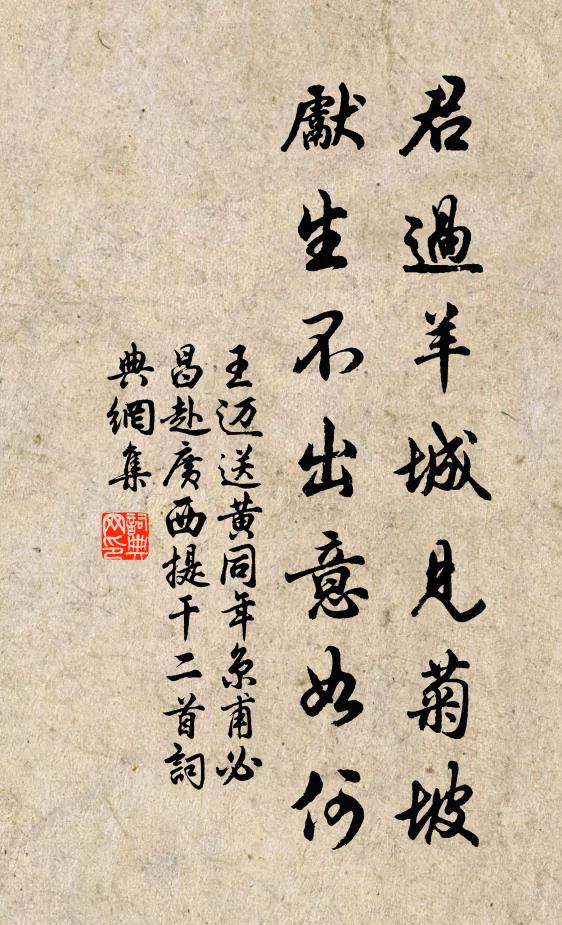 君過羊城見菊坡
獻生不出意如何
王迈送黄同年京甫必
昌赴廣西提干二首詞
典網集
詞典
网印